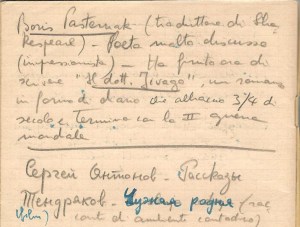 Boris Pasternak (traduttore di Sha
kespeare) - Poeta molto discusso
(impressionista) - Ha finito ora di
scrivere "Il dott. Jivago", un romanzo
in forma di diario che abbraccia 3/4 di
secolo e termina con la II guerra
mondiale
Сергей Антонов - Рассказы
Тендряков - Чужая родня (rac
conti d'ambiente contadino)